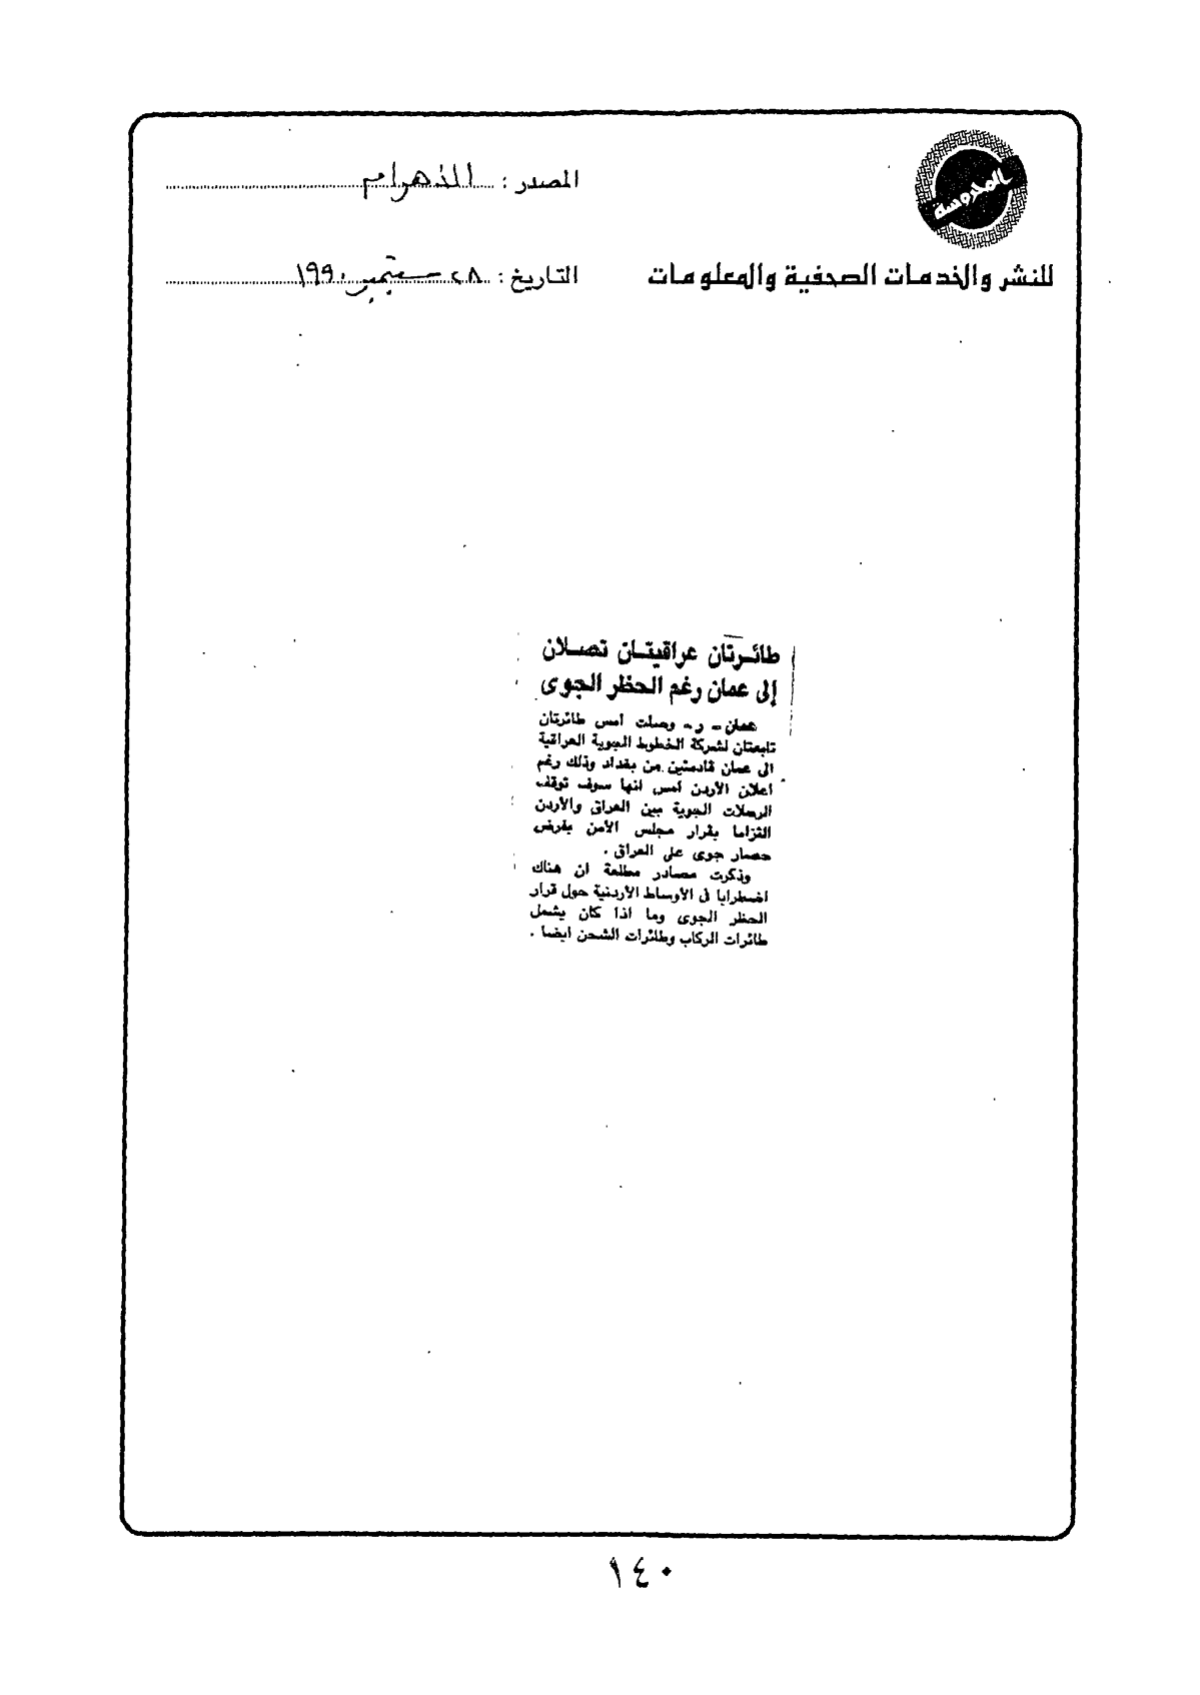 المحروسة
المصدر : الأهرام
للنشر والخدمات الصحفية والمعلومات
التاريخ : ٢٨ سبتمبر ١٩٩٠
طائرتان عراقيتان تصلان
إلى عمان رغم الحظر الجوى
عمان - ر - وصلت أمس طائرتان
تابعتان لشركة الخطوط الجوية العراقية
الى عمان قادمتين من بغداد وذلك رغم
اعلان الأردن أمس انها سوف توقف
الرحلات الجوية بين العراق والأردن
التزاما بقرار مجلس الأمن بفرض
حصار جوى على العراق .
وذكرت مصادر مطلعة ان هناك
اضطرابا فى الأوساط الأردنية حول قرار
الحظر الجوى وما اذا كان يشمل
طائرات الركاب وطائرات الشحن ايضا .
١٤٠